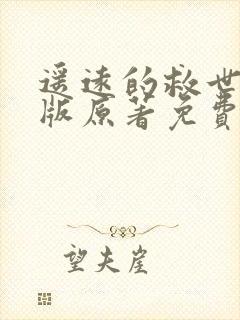 遥远的救世
版原著免费
望夫崖